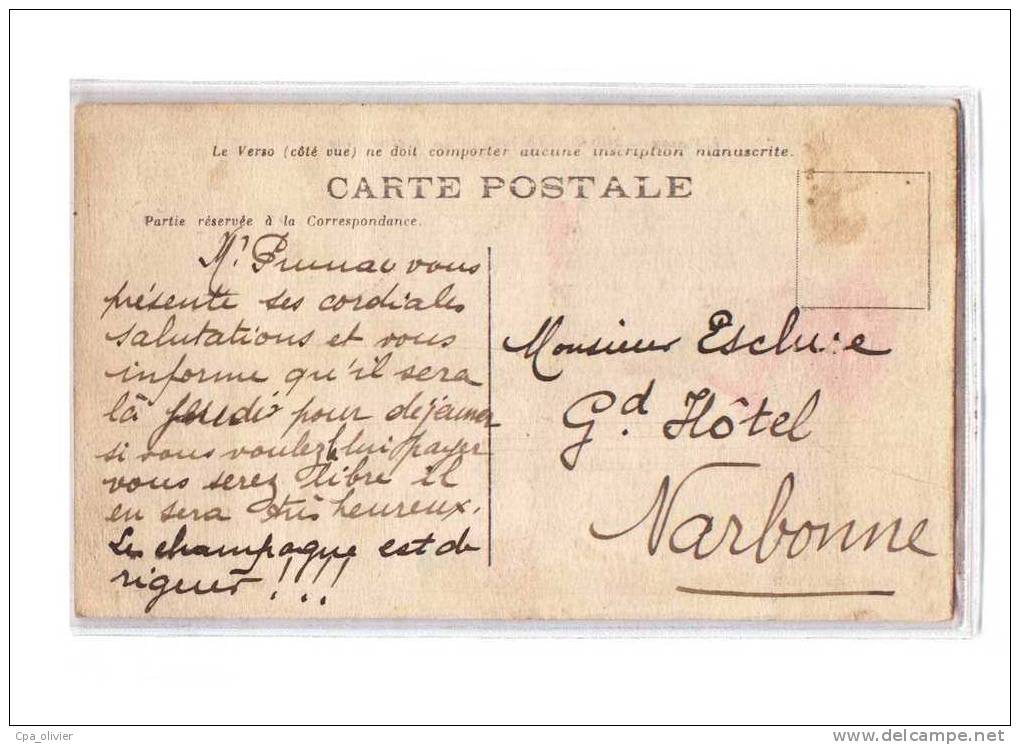 Le Verso (côté vue) ne doit comporter aucune inscription manuscrite.
CARTE POSTALE
Partie réservée à la Correspondance.
Mr Prunac vous
présente ses cordiales
salutations et vous
informe qu'il sera
là jeudi pour déjeuner
si vous voulez lui payer
vous serez libre il
en sera très heureux.
Le champagne est de
rigueur !!!!
Monsieur
Gd. Hôtel
Narbonne
Cpa_olivier
www.delcampe.net